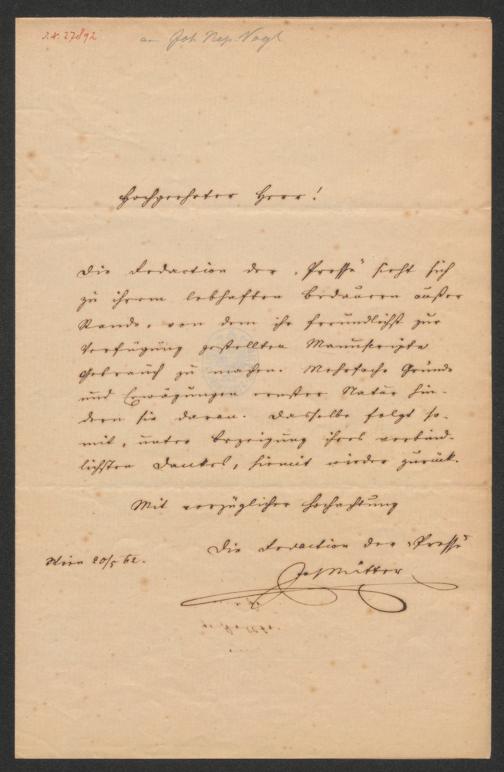 I.N. 27892
an Joh. Nep. Vogl
Hochgeehrter Herr!
Die Redaction der „Presse" sieht sich
zu ihrem lebhaften Bedauern außer
Stande, von dem ihr freundlichst zur
Verfügung gestellten Manuscripte
Gebrauch zu machen. Mehrfache Gründe
und Erwägungen ernster Natur hin-
dern sie daran. Dasselbe folgt so-
mit, unter Bezeigung ihres verbind-
lichsten Dankes, hiemit wieder zurück.
Mit vorzüglicher Hochachtung
Die Redaction der „Presse"
Wien 20/5 62.